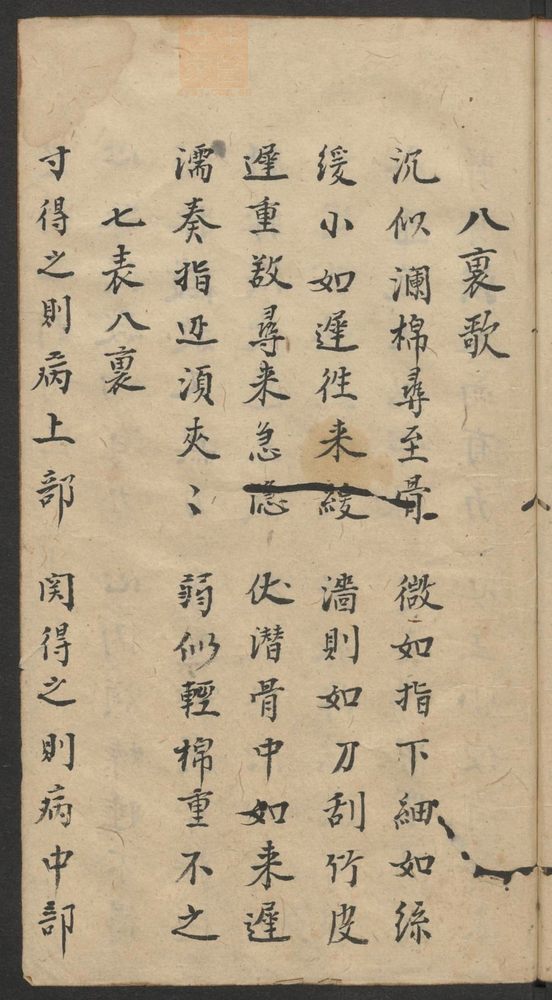 八裏歌
沉似瀾棉尋至骨 微如指下細如絲
緩小如遲徃来緩 濇則如刀刮竹皮
遲重𢾾尋来急隱 伏潛骨中如来遲
濡奏指迊湏夾〻 弱似輕棉重不之
七表八裏
寸得之則病上部 関得之則病中部